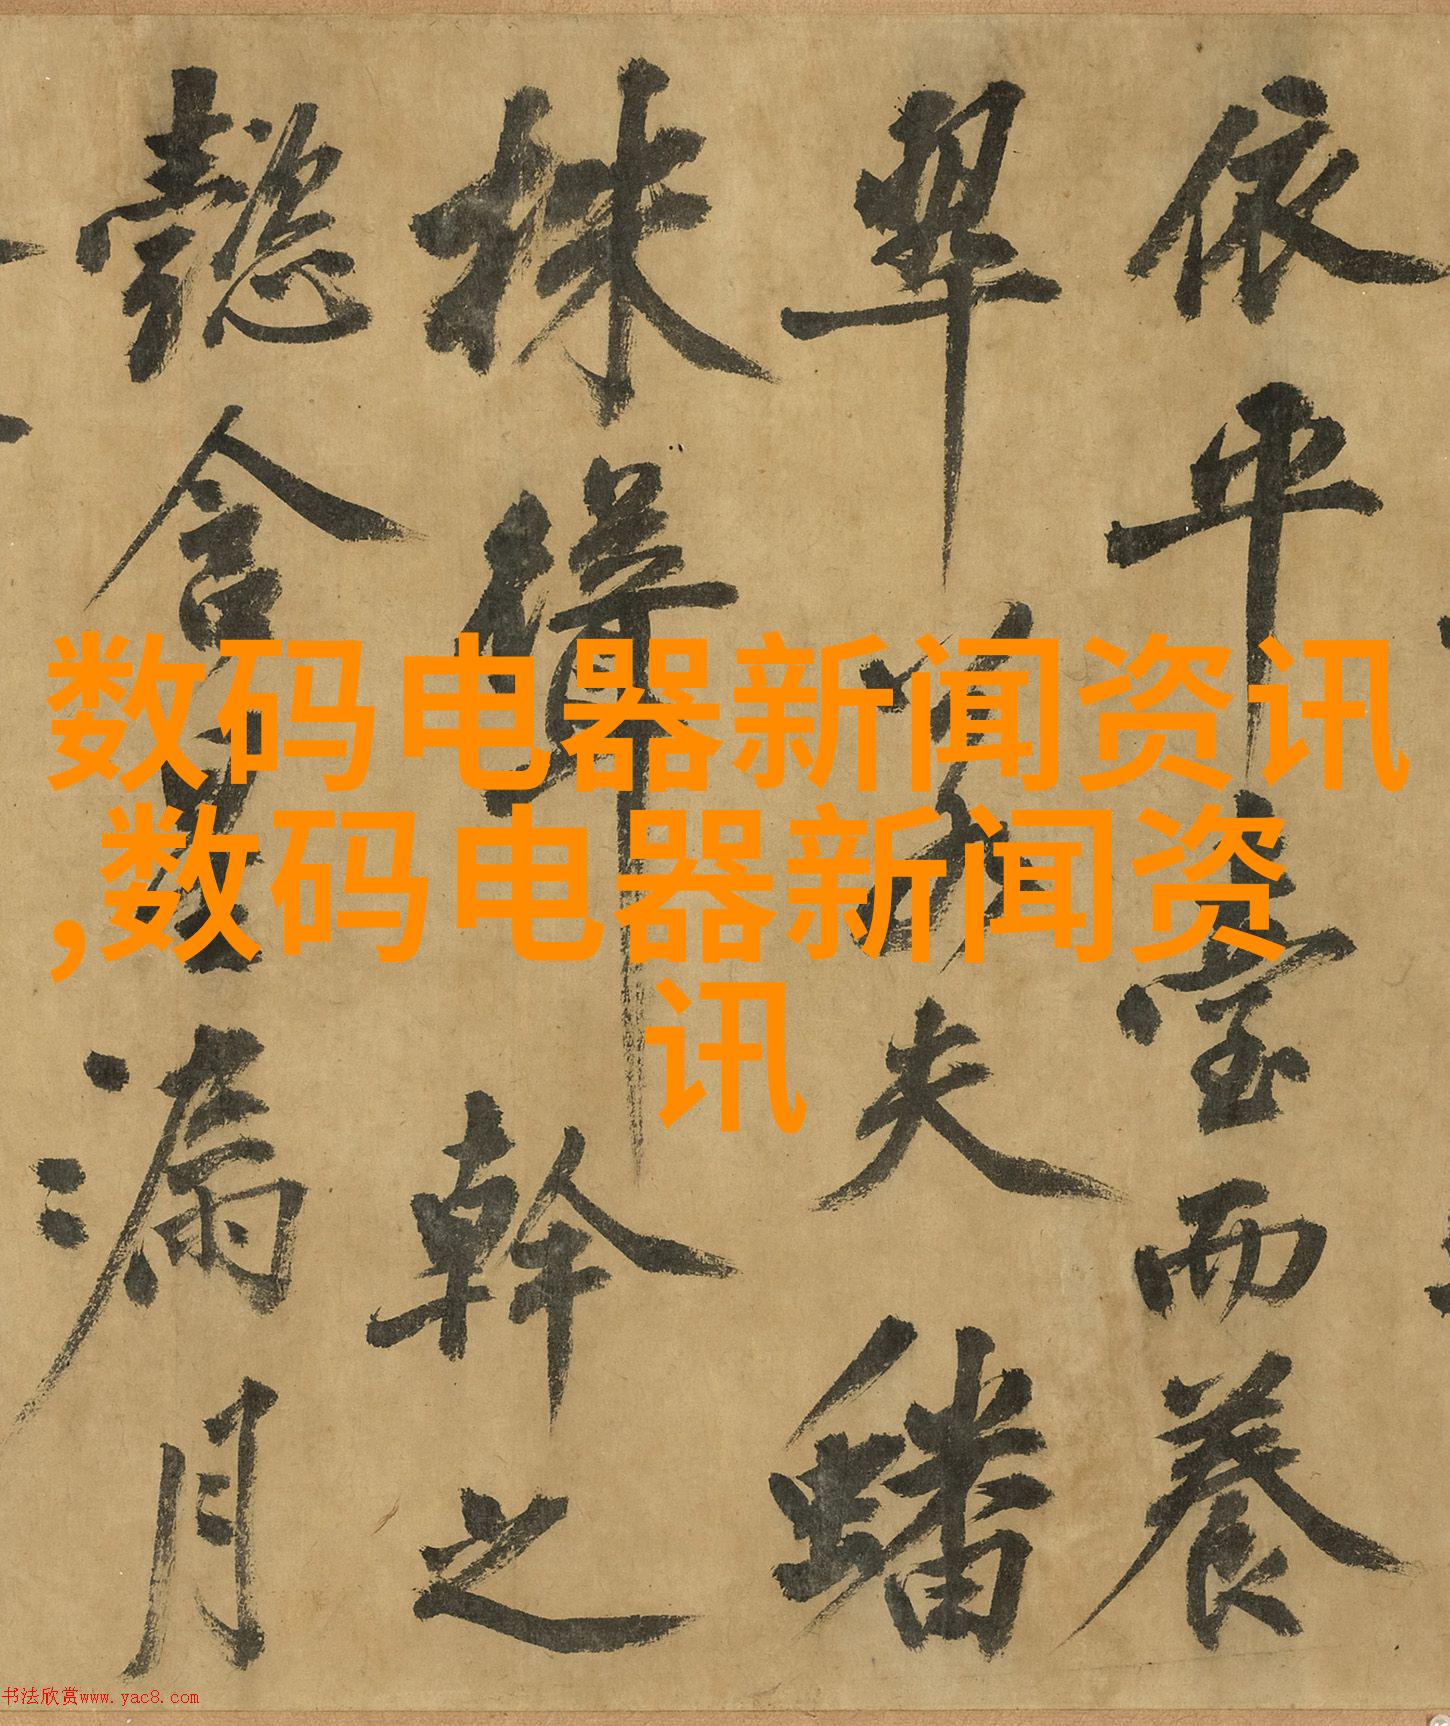 依平臺而養
翠若夫蟠
株聳幹之
懿含星漏月
数码电器新闻资讯
,数码电器新闻资
讯
书法欣赏www.yac8.com